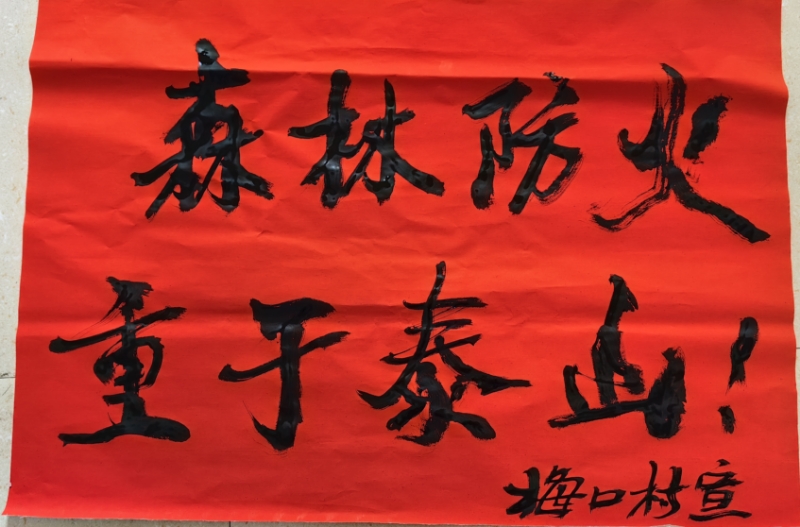 森林防火
重于泰山!
梅口村宣